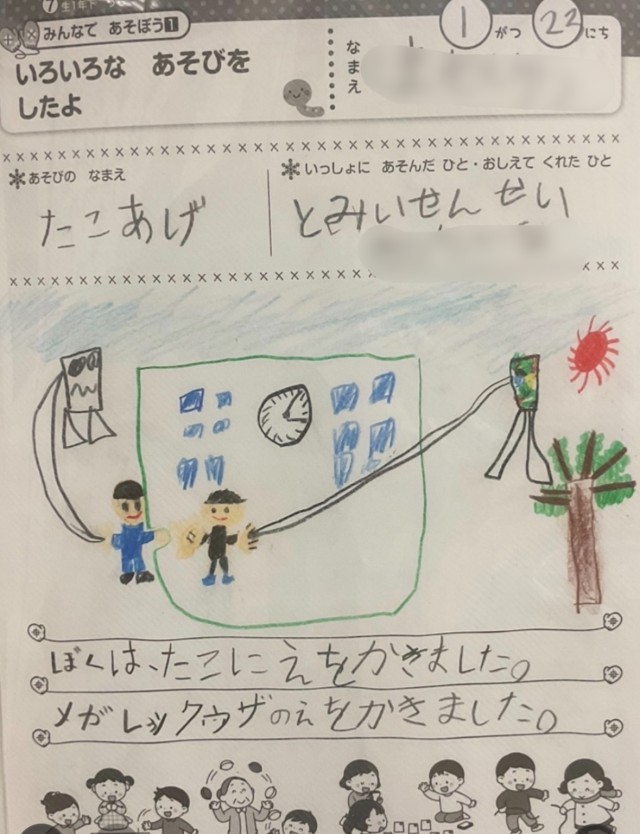 7 生1年下
みんなで あそぼう1
いろいろな あそびを
したよ
なまえ
1がつ 23にち
あそびの なまえ
たこあげ
いっしょに あそんだ ひと・おしえて くれた ひと
とみいせんせい
ぼくは、たこにえをかきました。
メガレックウザのえをかきました。